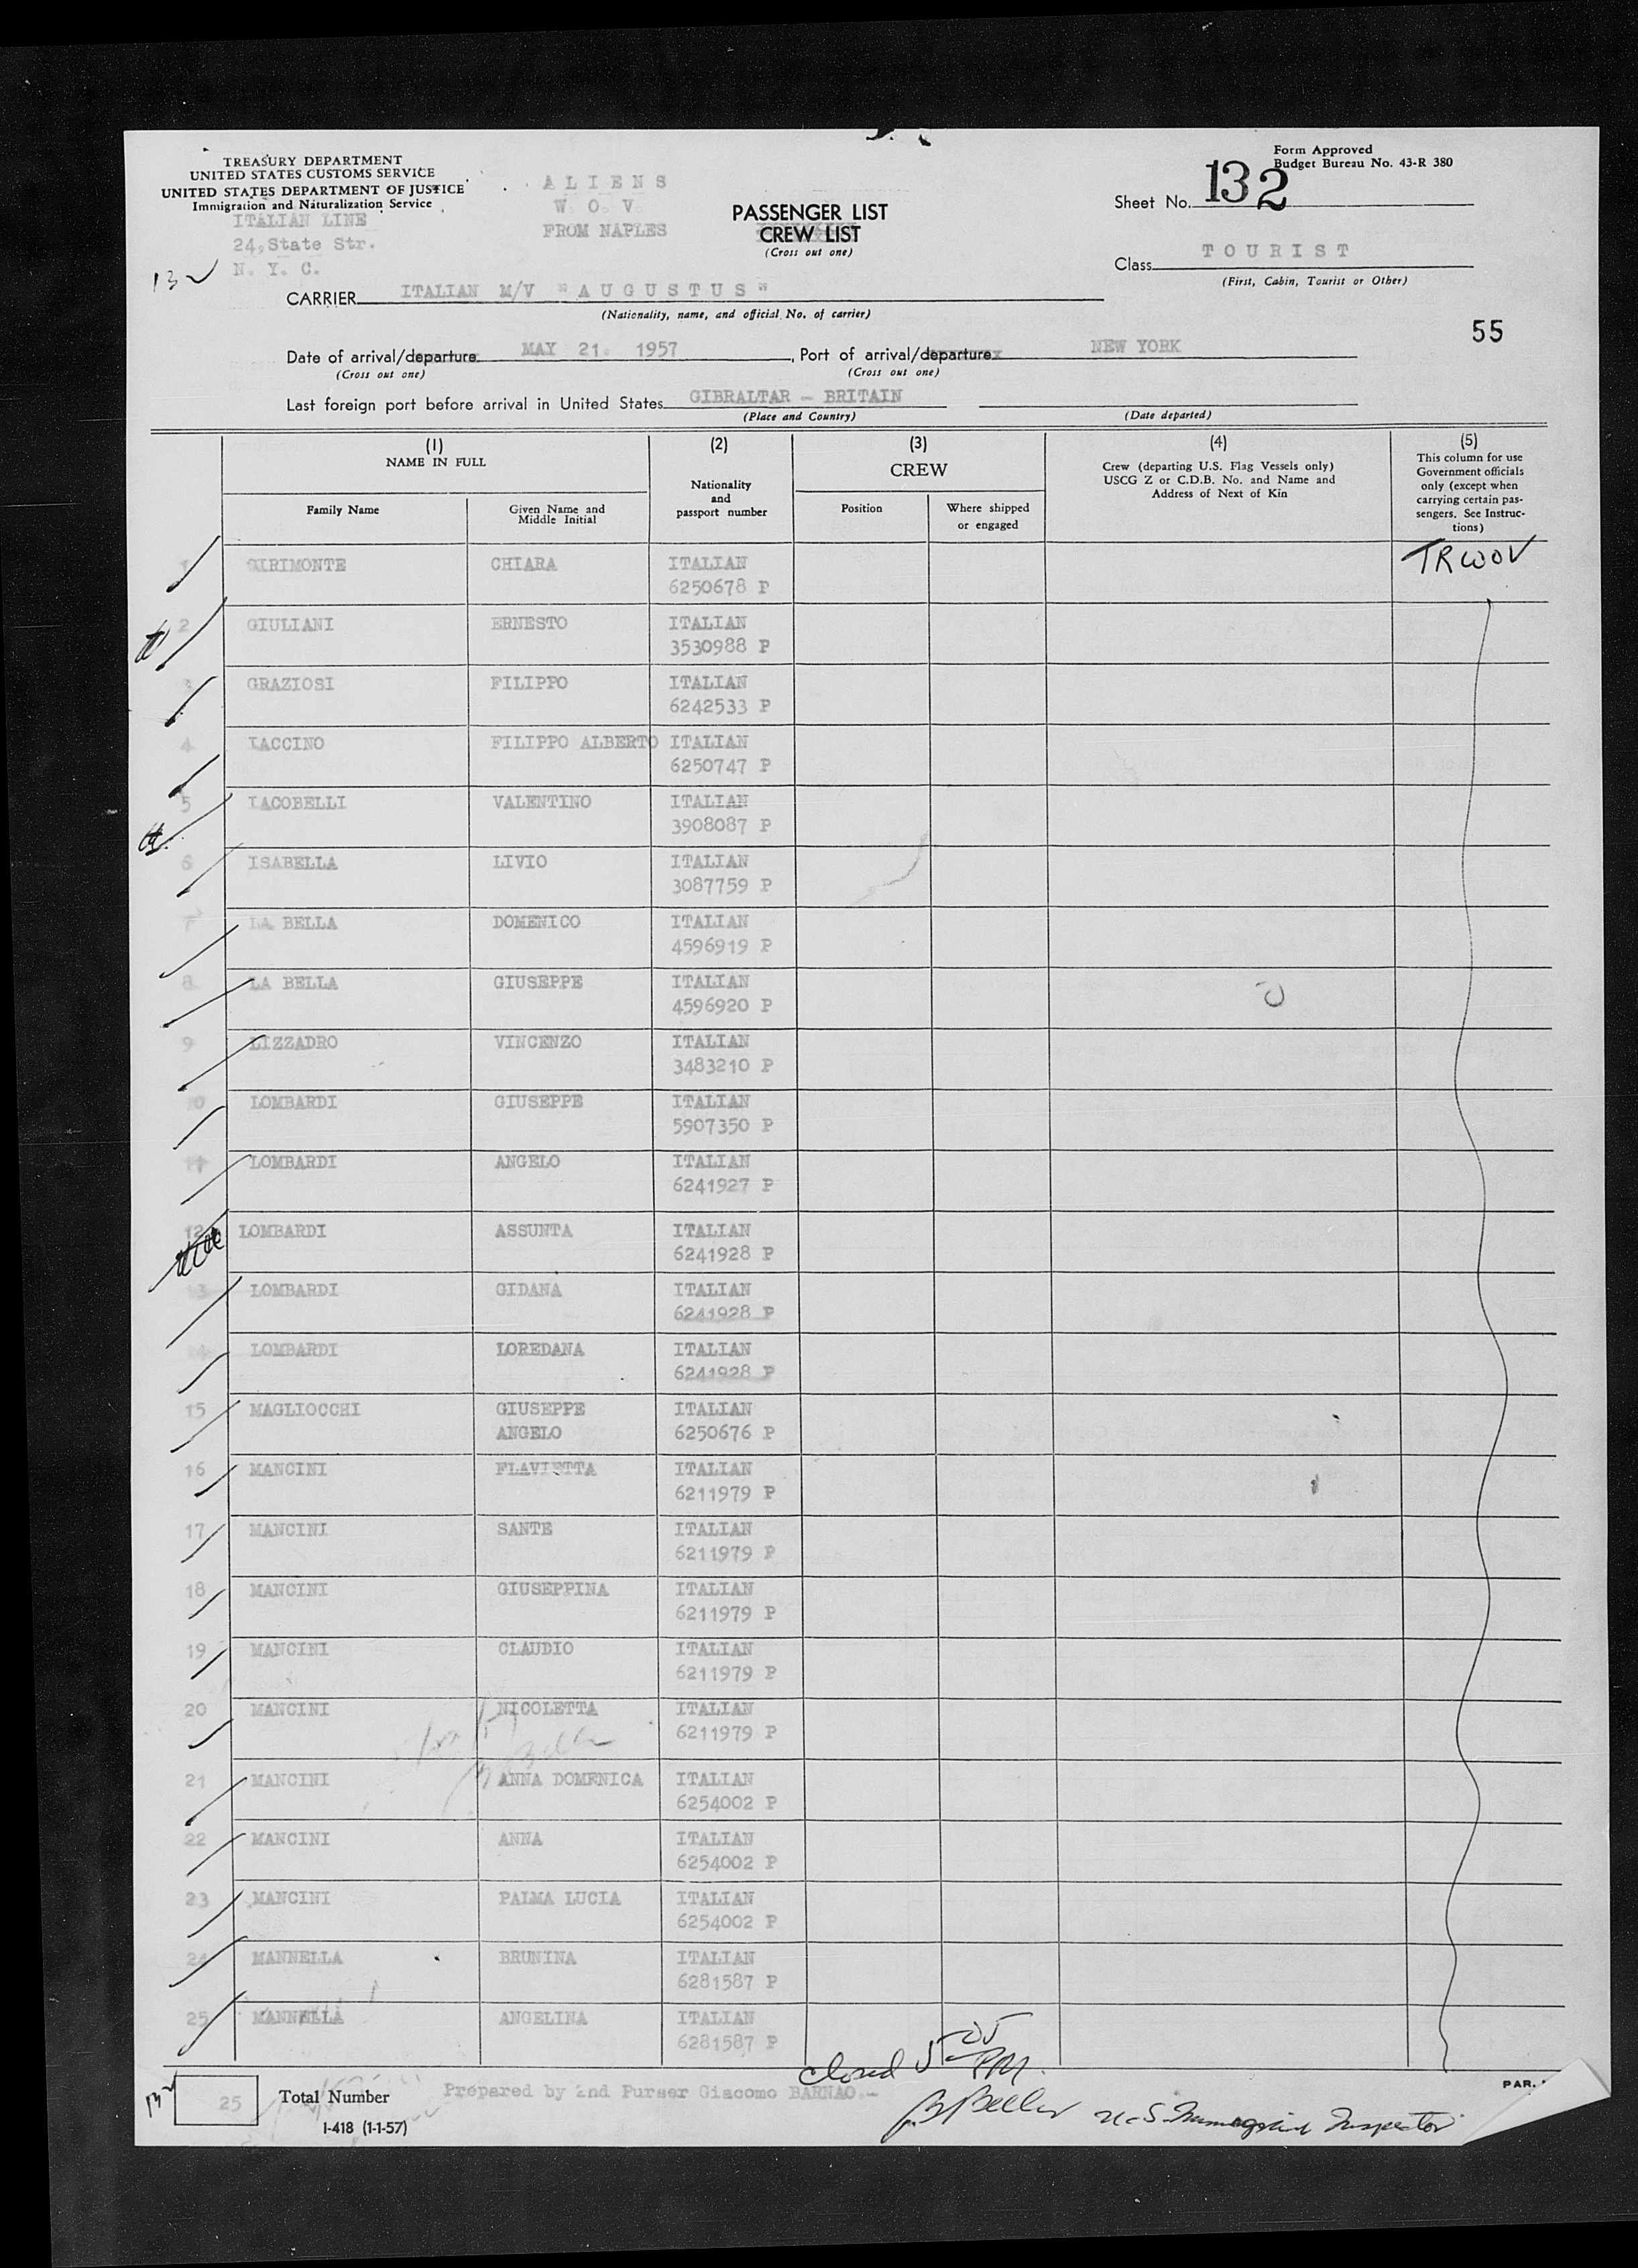 TREASURY DEPARTMENT
UNITED STATES CUSTOMS SERVICE
UNITED STATES DEPARTMENT OF JUSTICE
Immigration and Naturalization Service
ITALIAN LINE
24, State Str.
N. Y. C.
132
ALIENS
W. O. V.
FROM NAPLES
PASSENGER LIST
CREW LIST
(Cross out one)
Form Approved
Budget Bureau No. 43-R 380
Sheet No. 132
Class TOURIST
(First, Cabin, Tourist or Other)
CARRIER ITALIAN M/V "AUGUSTUS"
(Nationality, name, and official No. of carrier)
55
Date of arrival/departure MAY 21. 1957, Port of arrival/departure NEW YORK
(Cross out one) (Cross out one)
Last foreign port before arrival in United States GIBRALTAR - BRITAIN
(Place and Country) (Date departed)
(1) NAME IN FULL
Family Name
Given Name and Middle Initial
(2)
Nationality and passport number
(3)
CREW
Position
Where shipped or engaged
(4)
Crew (departing U.S. Flag Vessels only)
USCG Z or C.D.B. No. and Name and
Address of Next of Kin
(5)
This column for use
Government officials
only (except when
carrying certain pas-
sengers. See Instruc-
tions)
1 GIRIMONTE CHIARA ITALIAN TRWOV
6250678 P
2 GIULIANI ERNESTO ITALIAN
3530988 P
3 GRAZIOSI FILIPPO ITALIAN
6242533 P
4 IACCINO FILIPPO ALBERTO ITALIAN
6250747 P
5 IACOBELLI VALENTINO ITALIAN
3908087 P
6 ISABELLA LIVIO ITALIAN
3087759 P
7 LA BELLA DOMENICO ITALIAN
4596919 P
8 LA BELLA GIUSEPPE ITALIAN
4596920 P
9 LIZZADRO VINCENZO ITALIAN
3483210 P
10 LOMBARDI GIUSEPPE ITALIAN
5907350 P
11 LOMBARDI ANGELO ITALIAN
6241927 P
12 LOMBARDI ASSUNTA ITALIAN
6241928 P
13 LOMBARDI GIDANA ITALIAN
6241928 P
14 LOMBARDI LOREDANA ITALIAN
6241928 P
15 MAGLIOCCHI GIUSEPPE ITALIAN
ANGELO 6250676 P
16 MANCINI FLAVIETTA ITALIAN
6211979 P
17 MANCINI SANTE ITALIAN
6211979 P
18 MANCINI GIUSEPPINA ITALIAN
6211979 P
19 MANCINI CLAUDIO ITALIAN
6211979 P
20 MANCINI NICOLETTA ITALIAN
6211979 P
21 MANCINI ANNA DOMENICA ITALIAN
6254002 P
22 MANCINI ANNA ITALIAN
6254002 P
23 MANCINI PALMA LUCIA ITALIAN
6254002 P
24 MANNELLA BRUNINA ITALIAN
6281587 P
25 MANNELLA ANGELINA ITALIAN
6281587 P
closed 5 25 PM.
132
25 Total Number
Prepared by 2nd Purser Giacomo BARNAO.-
U.S. Immigrant Inspector
PAR.
I-418 (1-1-57)